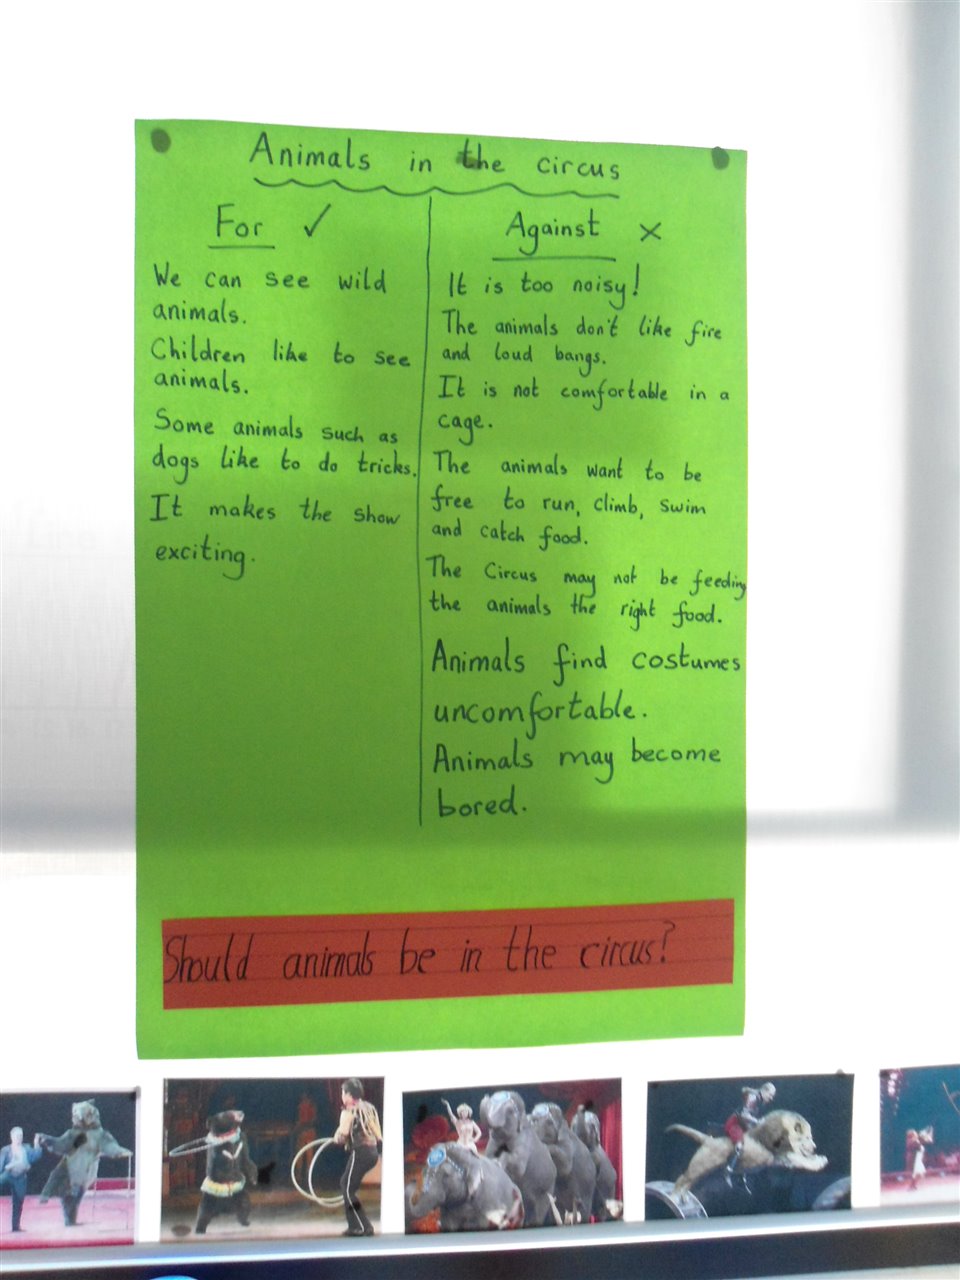 Animals in the circus
For ✓
We can see wild
animals.
Children like to see
animals.
Some animals such as
dogs like to do tricks.
It makes the show
exciting.
Against ×
It is too noisy!
The animals don't like fire
and loud bangs.
It is not comfortable in a
cage.
The animals want to be
free to run, climb, swim
and catch food.
The Circus may not be feeding
the animals the right food.
Animals find costumes
uncomfortable.
Animals may become
bored.
Should animals be in the circus?